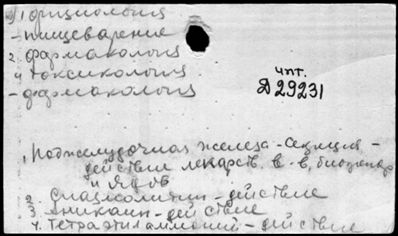 1 физиология
- пищеварение
2. фармакология
и токсикология
- фармакология
чпт.
Д 29231
1, Поджелудочная железа - секреция -
действие лекарств. в-в,
и ядов
2. Спазмолитин - действие
3. - действие
4. Тетраэтиламмоний - действие